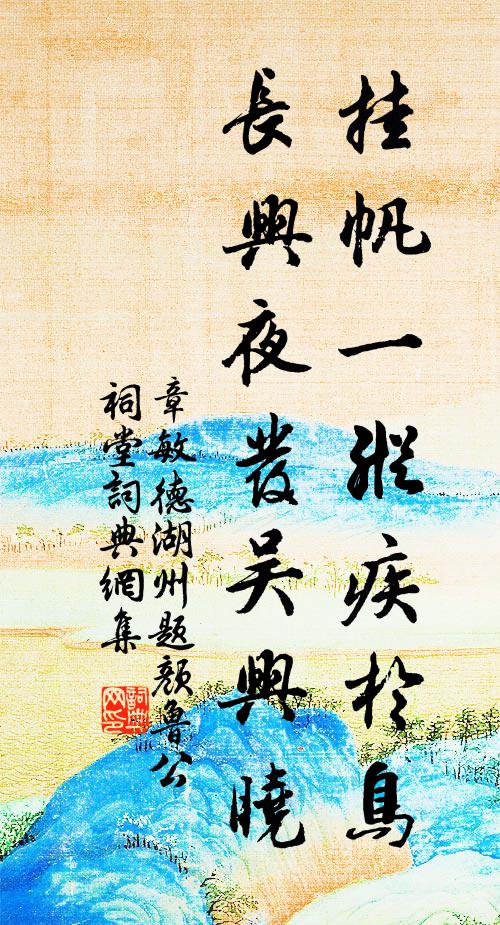 挂帆一縱疾於鳥
長興夜發吳興曉
章敏德湖州題顏魯公
祠堂詞典網集